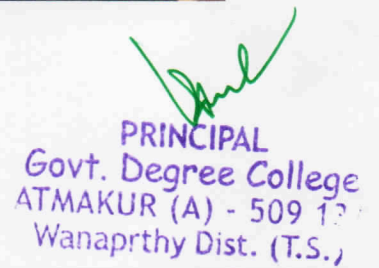 PRINCIPAL
Govt. Degree College
ATMAKUR (A) - 509
Wanaprthy Dist. (T.S.)